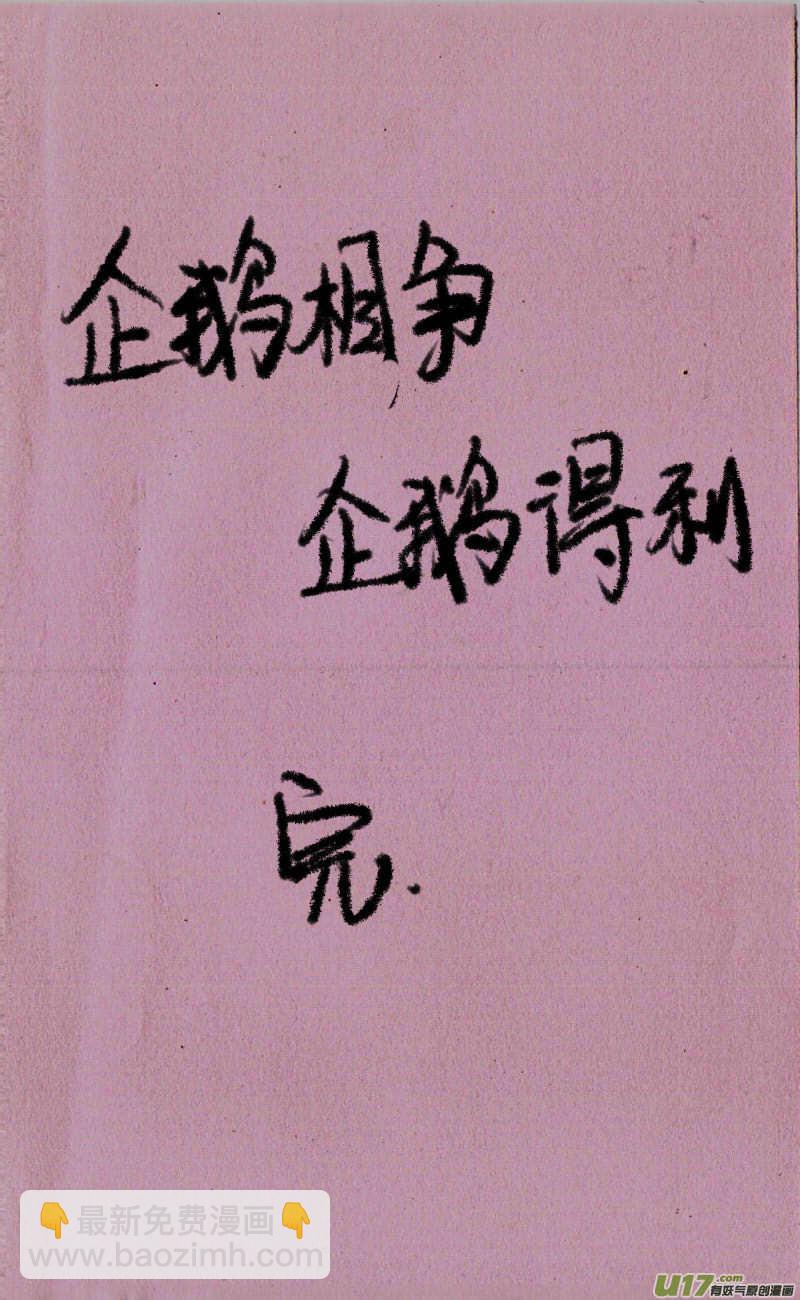 企鹅相争，
企鹅得利
完.
👇最新免费漫画👇
www.baozimh.com
U17.com
有妖气原创漫画